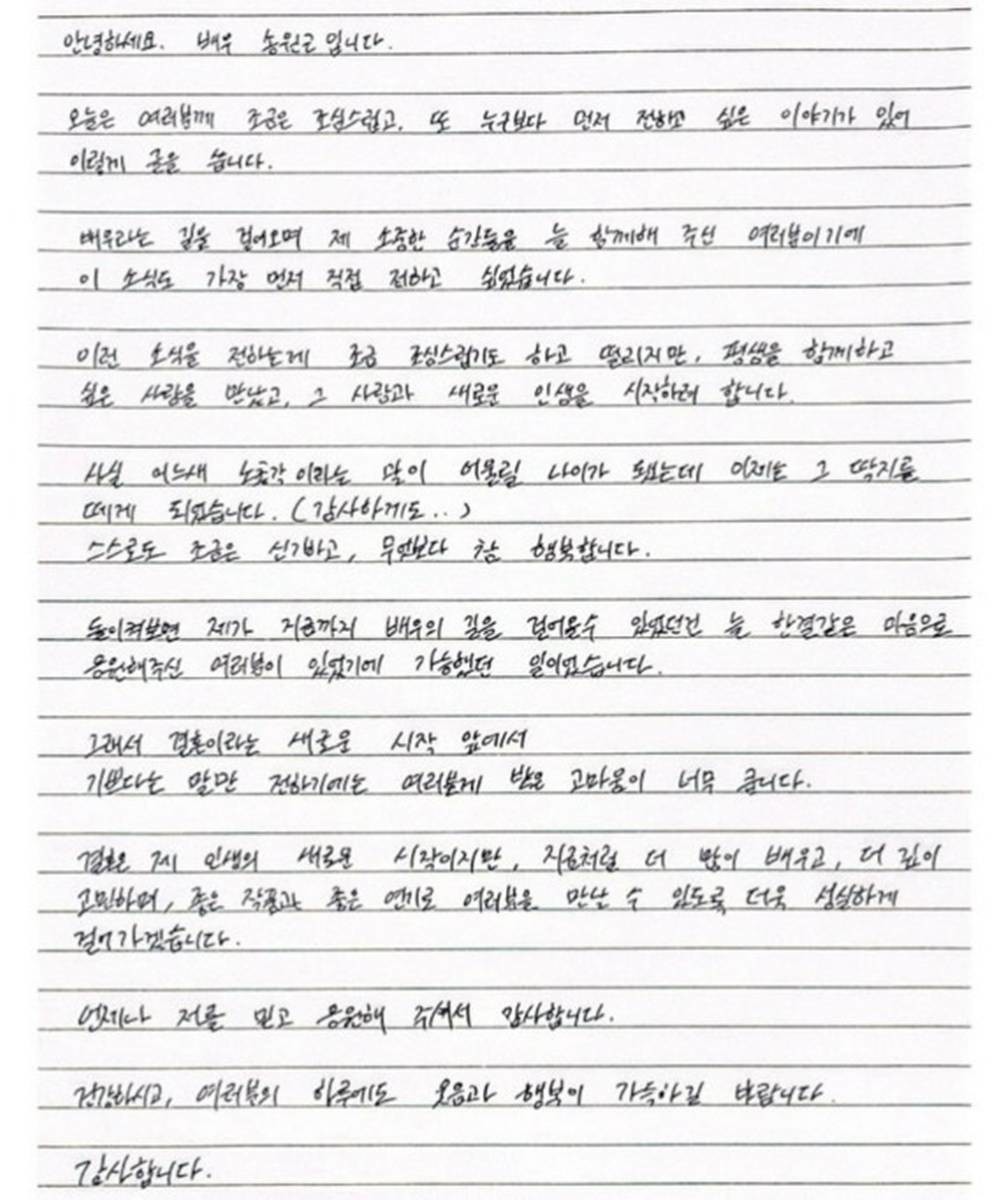 안녕하세요. 배우 송원근 입니다.
오늘은 여러분께 조금은 조심스럽고, 또 누구보다 먼저 전하고 싶은 이야기가 있어
이렇게 글을 씁니다.
배우라는 길을 걸어오며 제 소중한 순간들을 늘 함께해 주신 여러분이기에
이 소식도 가장 먼저 직접 전하고 싶었습니다.
이런 소식을 전하는게 조금 조심스럽기도 하고 떨리지만, 평생을 함께하고
싶은 사람을 만났고, 그 사람과 새로운 인생을 시작하려 합니다.
사실 어느새 노총각 이라는 말이 어울릴 나이가 됐는데 이제는 그 딱지를
떼게 되었습니다. (감사하게도..)
스스로도 조금은 신기하고, 무엇보다 참 행복합니다.
돌이켜보면 제가 지금까지 배우의 길을 걸어올수 있었던건 늘 한결같은 마음으로
응원해주신 여러분이 있었기에 가능했던 일이었습니다.
그래서 결혼이라는 새로운 시작 앞에서
기쁘다는 말만 전하기에는 여러분께 받은 고마움이 너무 큽니다.
결혼은 제 인생의 새로운 시작이지만, 지금처럼 더 많이 배우고, 더 깊이
고민하며, 좋은 작품과 좋은 연기로 여러분을 만날 수 있도록 더욱 성실하게
걸어가겠습니다.
언제나 저를 믿고 응원해 주셔서 감사합니다.
건강하시고, 여러분의 하루에도 웃음과 행복이 가득하길 바랍니다.
감사합니다.